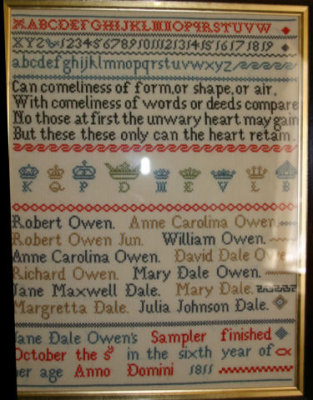 ABCDEFGHIJKLMNOPQRSTUVW
XYZ&123456789101112131415161718 19
abcdefghijklmnopqrstuvwxyz
Can comeliness of form, or shape, or air,
With comeliness of words or deeds compare
No those at first the unwary heart may gain
But these these only can the heart retain.
K Q P D M E V L B
Robert Owen. Anne Carolina Owen.
Robert Owen Jun. William Owen.
Anne Carolina Owen. David Dale Owen
Richard Owen. Mary Dale Owen.
Jane Maxwell Dale. Mary Dale.
Margretta Dale. Julia Johnson Dale.
Jane Dale Owen's Sampler finished
October the in the sixth year of
her age Anno Domini 1811